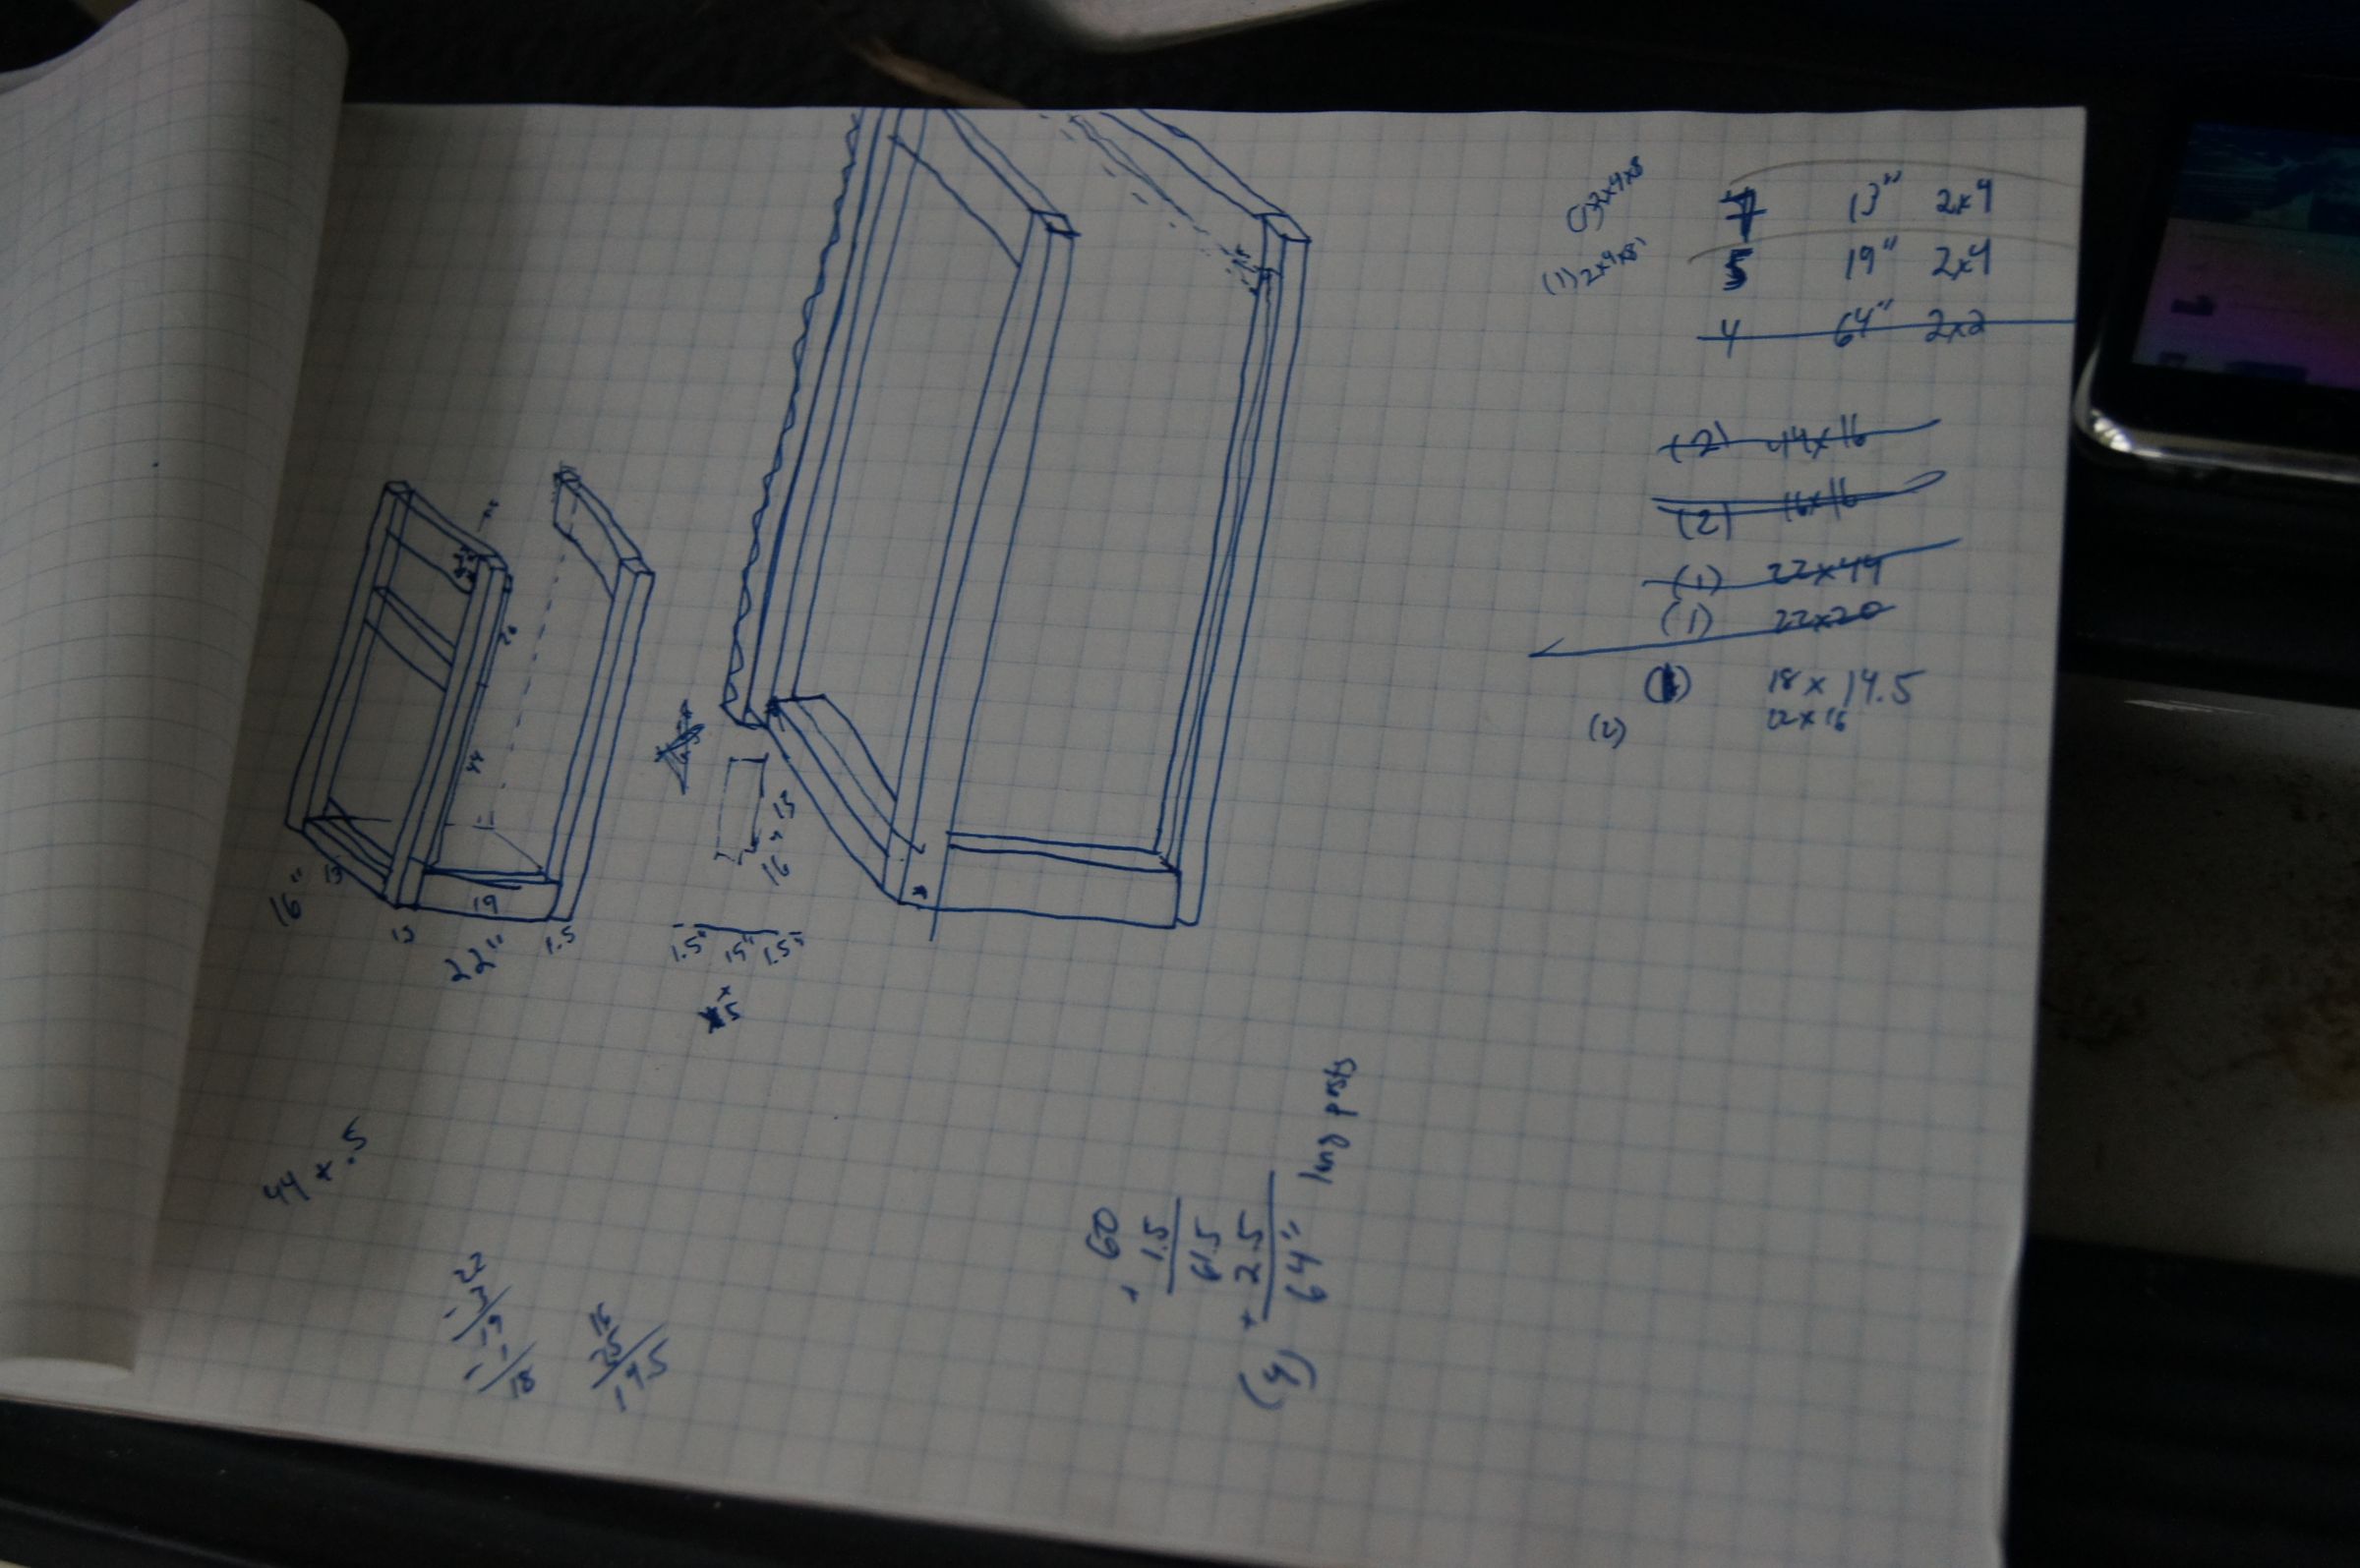 (1) 2x4x8'
13" 2x4
5 19" 2x4
4 64" 2x2
(2) 44x16
(2) 16x16
(1) 22x44
(1) 22x20
18 x 14.5
(2) 22x16
20
44
13
16"
19
22"
1.5
13
16"
1.5" 15" 1.5"
44 x .5
22
- 3
19
- 1
18
16
60
+ 1.5
61.5
+ 2.5
(4) 64" long posts